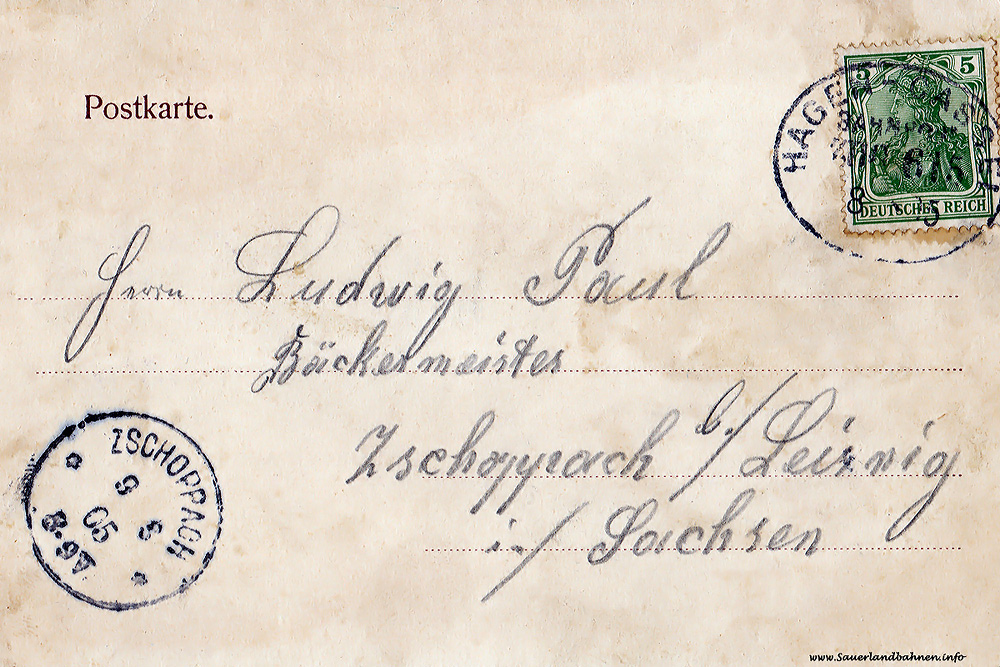 Postkarte.
5 5
DEUTSCHES REICH
HAGEN - CAS
Herrn Ludwig Paul
Bäckermeister
Zschoppach b./ Leisnig
i./ Sachsen
ZSCHOPPACH
9 5
05
8-9V
www.Sauerlandbahnen.info